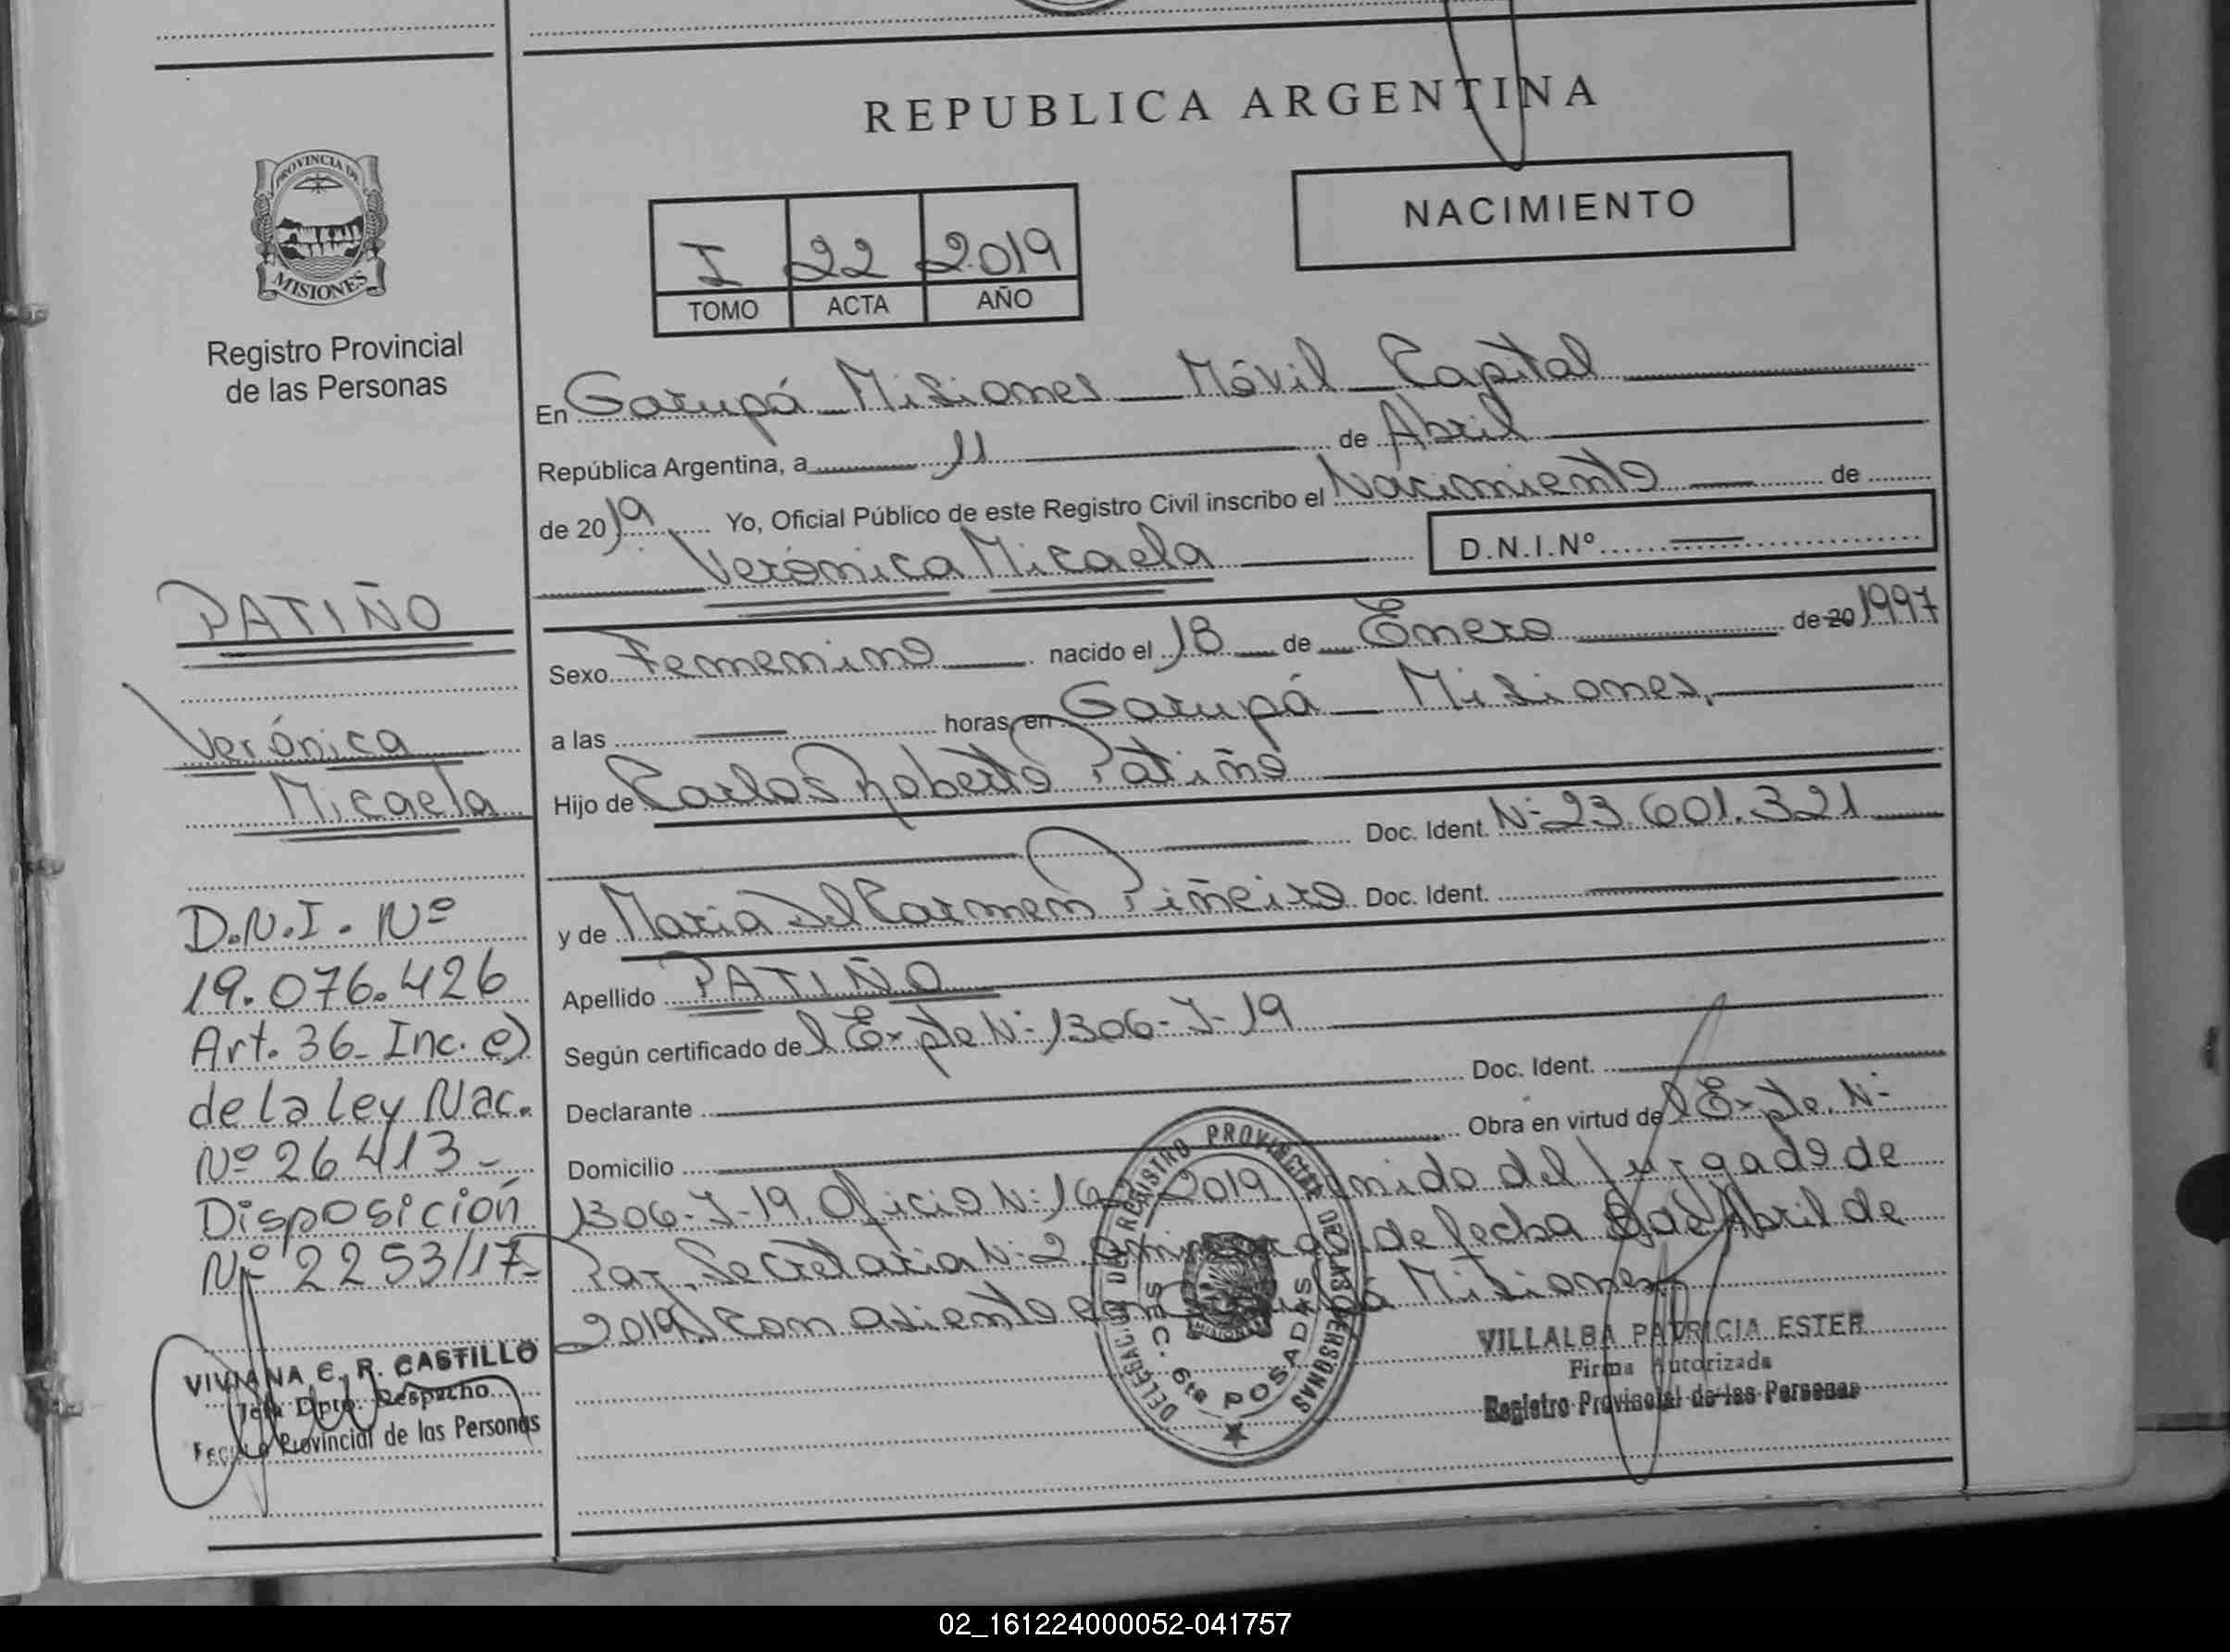 REPUBLICA ARGENTINA
NACIMIENTO
PROVINCIA DE
MISIONES
Registro Provincial
de las Personas
I 22 2019
TOMO ACTA AÑO
En Garupá Misiones Móvil Capital
República Argentina, a 11 de Abril
de 2019 Yo, Oficial Público de este Registro Civil inscribo el Nacimiento de
Verónica Micaela D.N.I.Nº
Sexo Femenino nacido el 18 de Enero de 20 1997
a las horas, en Garupá Misiones,
Hijo de Carlos Roberto Patiño
Doc. Ident. Nº 23.601.321
y de Maria Del Carmen Piñeiro Doc. Ident.
Apellido PATIÑO
Según certificado del Expte Nº 1306-J-19
Declarante Doc. Ident.
Domicilio Obra en virtud del Expte. Nº
1306-J-19. Oficio Nº 2019 del Juzgado de
Paz, Secretaria Nº 2 de fecha de Abril de
2019 con asiento en Misiones
PATIÑO
Verónica
Micaela
D.N.I. Nº
19.076.426
Art. 36 Inc. e)
de la Ley Nac.
Nº 26413-
Disposición
Nº 2253/17-
VIVIANA E. R. CASTILLO
Jefa Dpto. Despacho
Provincial de las Personas
DELEGAC. DE REGISTRO PROVINCIAL DE LAS PERSONAS
SEC. 6ta POSADAS
VILLALBA PATRICIA ESTER
Firma Autorizada
Registro Provincial de las Personas
02_161224000052-041757